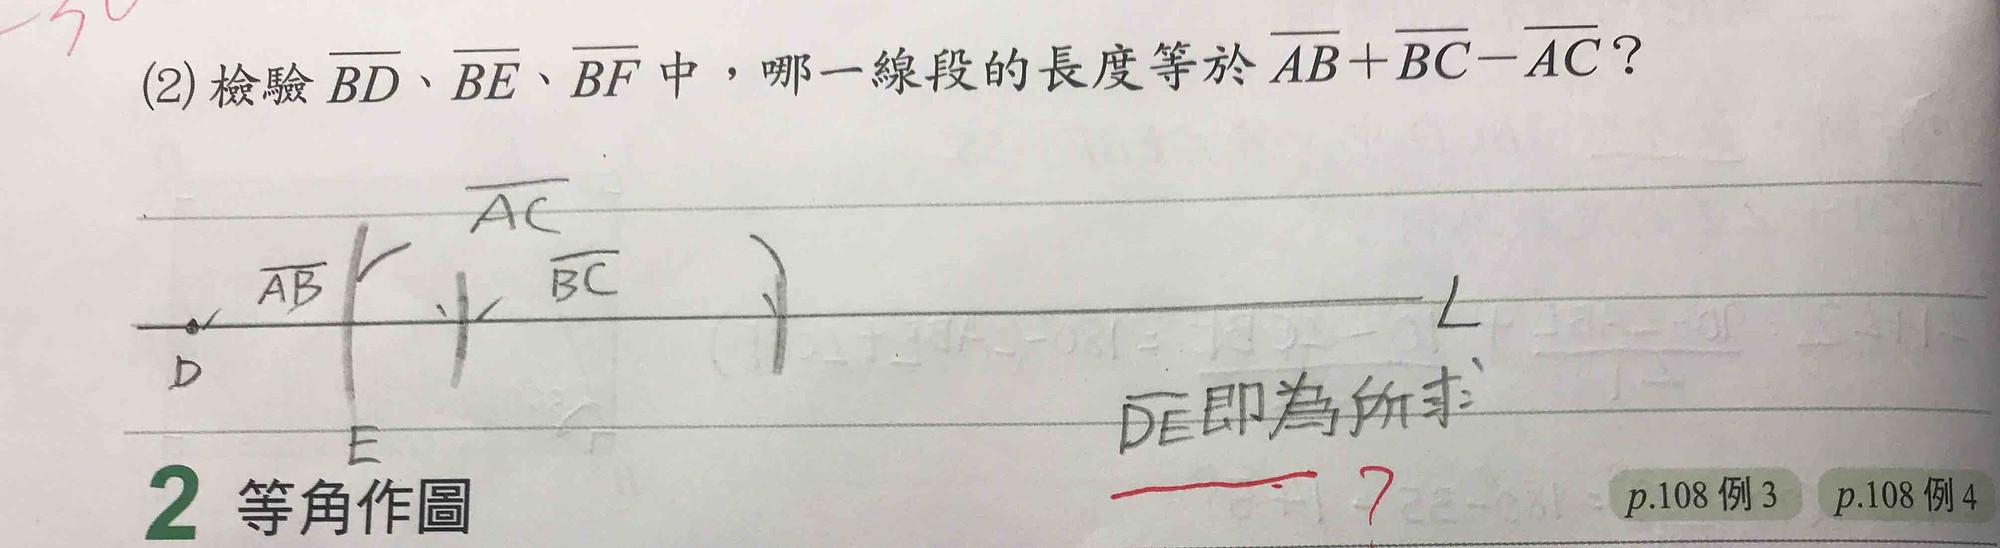 (2) 檢驗 BD、BE、BF 中，哪一線段的長度等於 AB+BC-AC？
AC
AB
BC
L
D
DE即為所求
E
?
2 等角作圖
p.108 例 3
p.108 例 4